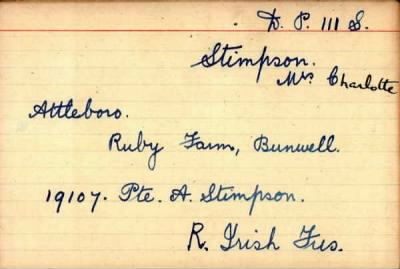 D. P. 111 S.
Stimpson.
Mrs Charlotte
Attleboro.
Ruby Farm, Bunwell.
19107. Pte. A. Stimpson.
R. Irish Fus.